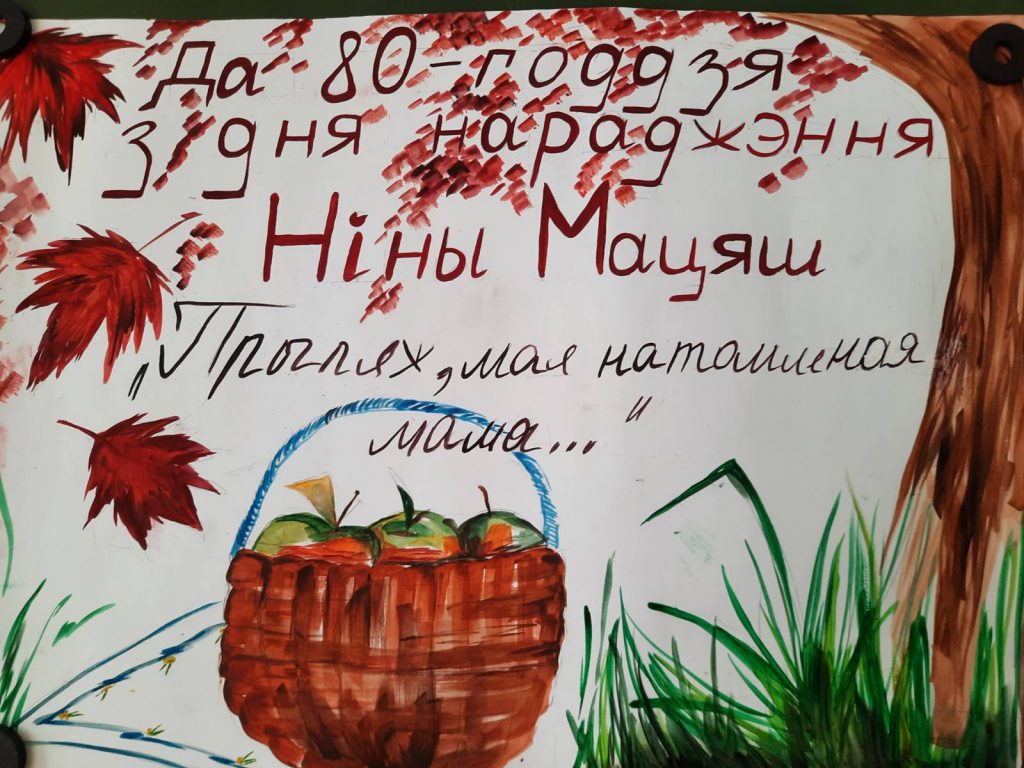 Да 80-годдзя
з дня нараджэння
Ніны Мацяш
„Прыляж, мая натомленая
мама..."